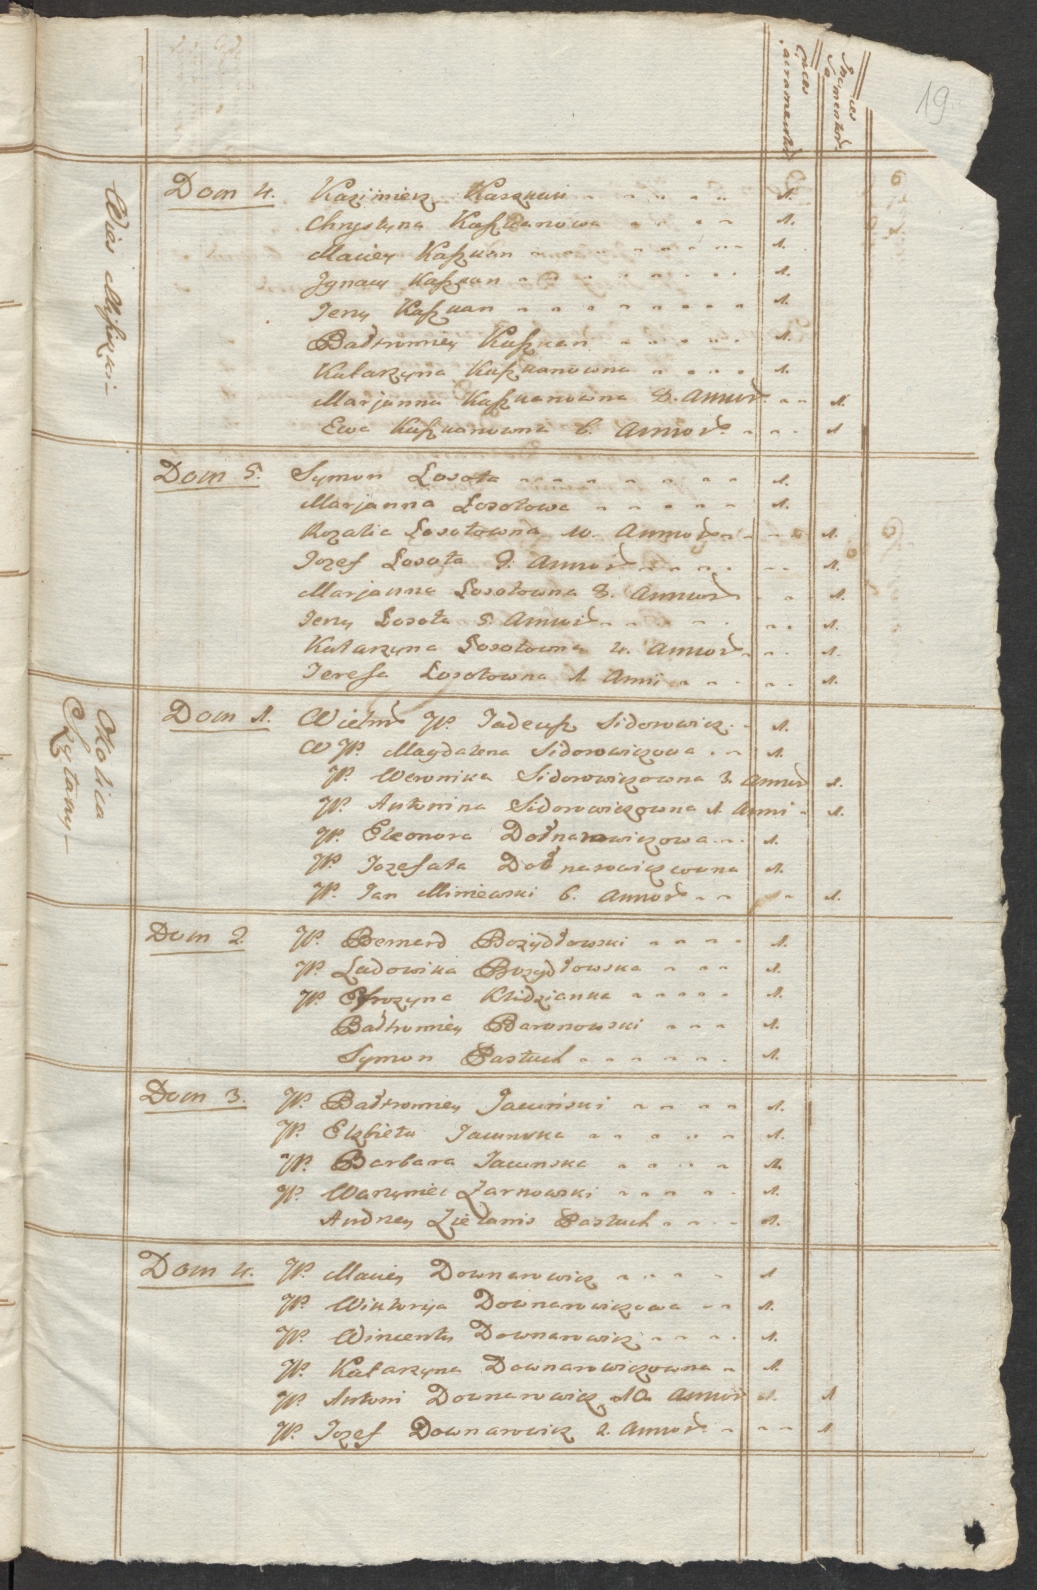 19.
Wieś
Dom 4. Kazimierz Kaszkun 1.
Chrystyna Kaszkanowa 1.
Maciey Kaszkan 1.
Jgnacy Kaszkan 1.
Jerzy Kaszkan 1.
Bałtromiey Kaszkan 1.
Katarzyna Kaszkanowna 1.
Marjanna Kaszkanowna 8. Annor. 1.
Ewa Kaszkanowna 6. Annor. 1
Dom 5. Symon Łosota 1.
Marjanna Łosotowa 1.
Rozalia Łosotowna 10. Annor. 1.
Jozef Łosota 9. Annor. 1.
Marjanna Łosotowna 8. Annor. 1.
Jerzy Łosota 5. Annor. 1.
Katarzyna Łosotowna 4. Annor. 1.
Teresa Łosotowna 1. Anni 1.
Okolica
Dom 1. Wielm JP. Tadeusz Sidorowicz 1.
W JP. Magdalena Sidorowiczowa 1.
JP. Weronika Sidorowiczowna 3. Annor 1.
JP. Antonina Sidorowiczowna 1. Anni 1.
JP. Eleonora Dołnarowiczowa 1.
JP. Jozefata Dołnarowiczowna 1.
JP. Jan Miniewski 6. Annor 1.
Dom 2. JP. Bernard Bożydłowski 1.
JP. Ludowika Bozydłowska 1.
JP. Efrozyna Klidzianka 1.
Bałtromiey Baranowski 1.
Symon Pastuch 1.
Dom 3. JP. Bałtromiey Jacuński 1.
JP. Elzbieta Jacunska 1.
JP. Barbara Jacunska 1.
JP. Warzyniec Żarnowski 1.
Andrzey Zielanis Pastuch 1.
Dom 4. JP. Maciey Downarowicz 1
JP. Wiktorya Downarowiczowa 1.
JP. Wincenty Downarowicz 1.
JP. Katarzyna Downarowiczowna 1.
JP. Antoni Downarowicz 10. Annor 1. 1
JP. Jozef Downarowicz 2. Annor. 1